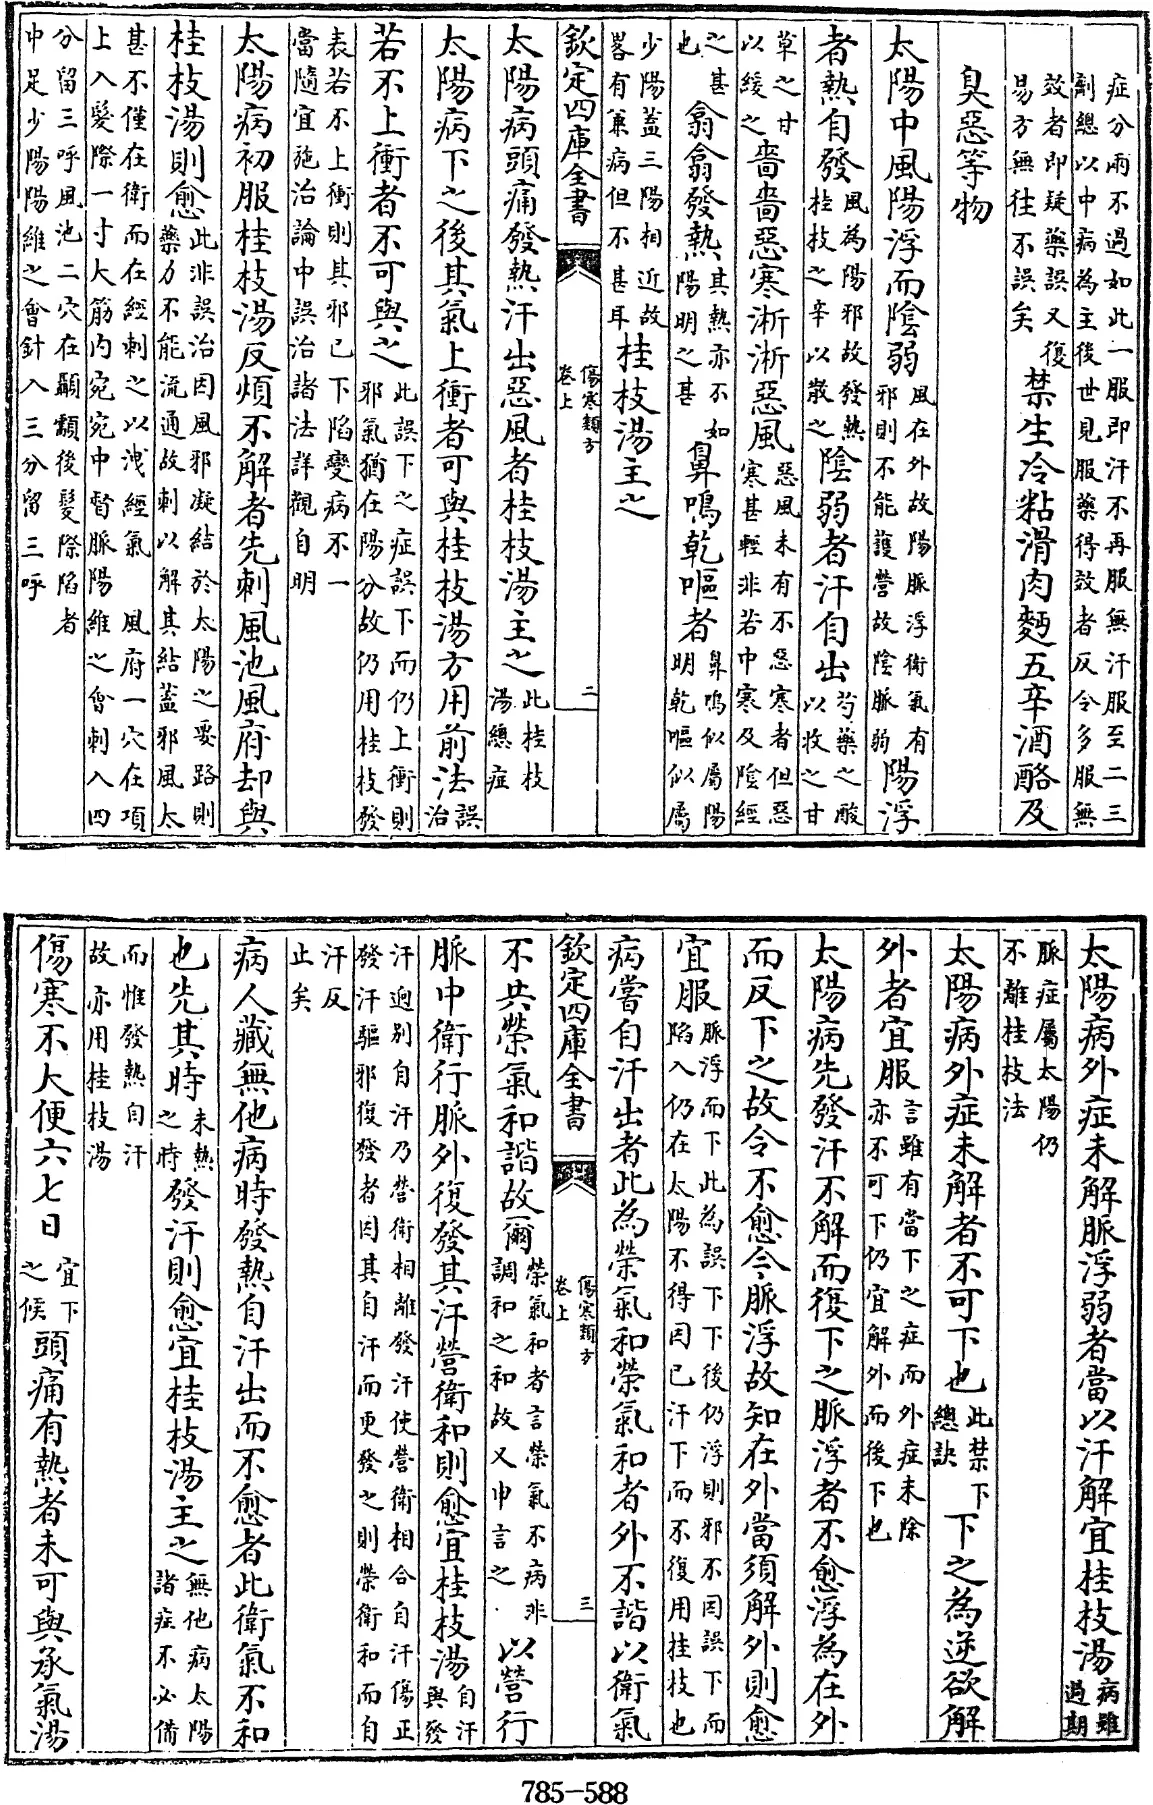 症分兩不過如此一服即汗不再服無汗服至二三
劑總以中病為主後世見服藥得效者反令多服無
效者即疑藥誤又復
易方無往不誤矣
禁生冷粘滑肉麪五辛酒酪及
臭惡等物
太陽中風陽浮而陰弱
風在外故陽脈浮衛氣有
邪則不能護營故陰脈弱
陽浮
者熱自發
風為陽邪故發熱
桂枝之辛以散之
陰弱者汗自出
芍藥之酸
以收之甘
草之甘
以緩之
嗇嗇惡寒淅淅惡風
惡風未有不惡寒者但惡
寒甚輕非若中寒及陰經
之甚
也
翕翕發熱
其熱亦不如
陽明之甚
鼻鳴乾嘔者
鼻鳴似屬陽
明乾嘔似屬
少陽蓋三陽相近故
畧有兼病但不甚耳
桂枝湯主之
欽定四庫全書
傷寒類方
卷上
二
太陽病頭痛發熱汗出惡風者桂枝湯主之
此桂枝
湯總症
太陽病下之後其氣上衝者可與桂枝湯方用前法
誤
治
若不上衝者不可與之
此誤下之症誤下而仍上衝則
邪氣猶在陽分故仍用桂枝發
表若不上衝則其邪已下陷變病不一
當隨宜施治論中誤治諸法詳觀自明
太陽病初服桂枝湯反煩不解者先刺風池風府却與
桂枝湯則愈
此非誤治因風邪凝結於太陽之要路則
藥力不能流通故刺以解其結蓋邪風太
甚不僅在衛而在經刺之以洩經氣 風府一穴在項
上入髮際一寸大筋内宛宛中督脈陽維之會刺入四
分留三呼風池二穴在顳顬後髮際陷者
中足少陽陽維之會針入三分留三呼
太陽病外症未解脈浮弱者當以汗解宜桂枝湯
病雖
過期
脈症屬太陽仍
不離桂枝法
太陽病外症未解者不可下也
此禁下
總訣
下之為逆欲解
外者宜服
言雖有當下之症而外症未除
亦不可下仍宜解外而後下也
太陽病先發汗不解而復下之脈浮者不愈浮為在外
而反下之故令不愈今脈浮故知在外當須解外則愈
宜服
脈浮而下此為誤下下後仍浮則邪不因誤下而
陷入仍在太陽不得因已汗下而不復用桂枝也
病嘗自汗出者此為榮氣和榮氣和者外不諧以衛氣
欽定四庫全書
傷寒類方
卷上
三
不共榮氣和諧故爾
榮氣和者言榮氣不病非
調和之和故又申言之
以營行
脈中衛行脈外復發其汗營衛和則愈宜桂枝湯
自汗
與發
汗迥别自汗乃營衛相離發汗使營衛相合自汗傷正
發汗驅邪復發者因其自汗而更發之則榮衛和而自
汗反
止矣
病人藏無他病時發熱自汗出而不愈者此衛氣不和
也先其時
未熱
之時
發汗則愈宜桂枝湯主之
無他病太陽
諸症不必備
而惟發熱自汗
故亦用桂枝湯
傷寒不大便六七日
宜下
之候
頭痛有熱者未可與承氣湯
785-588